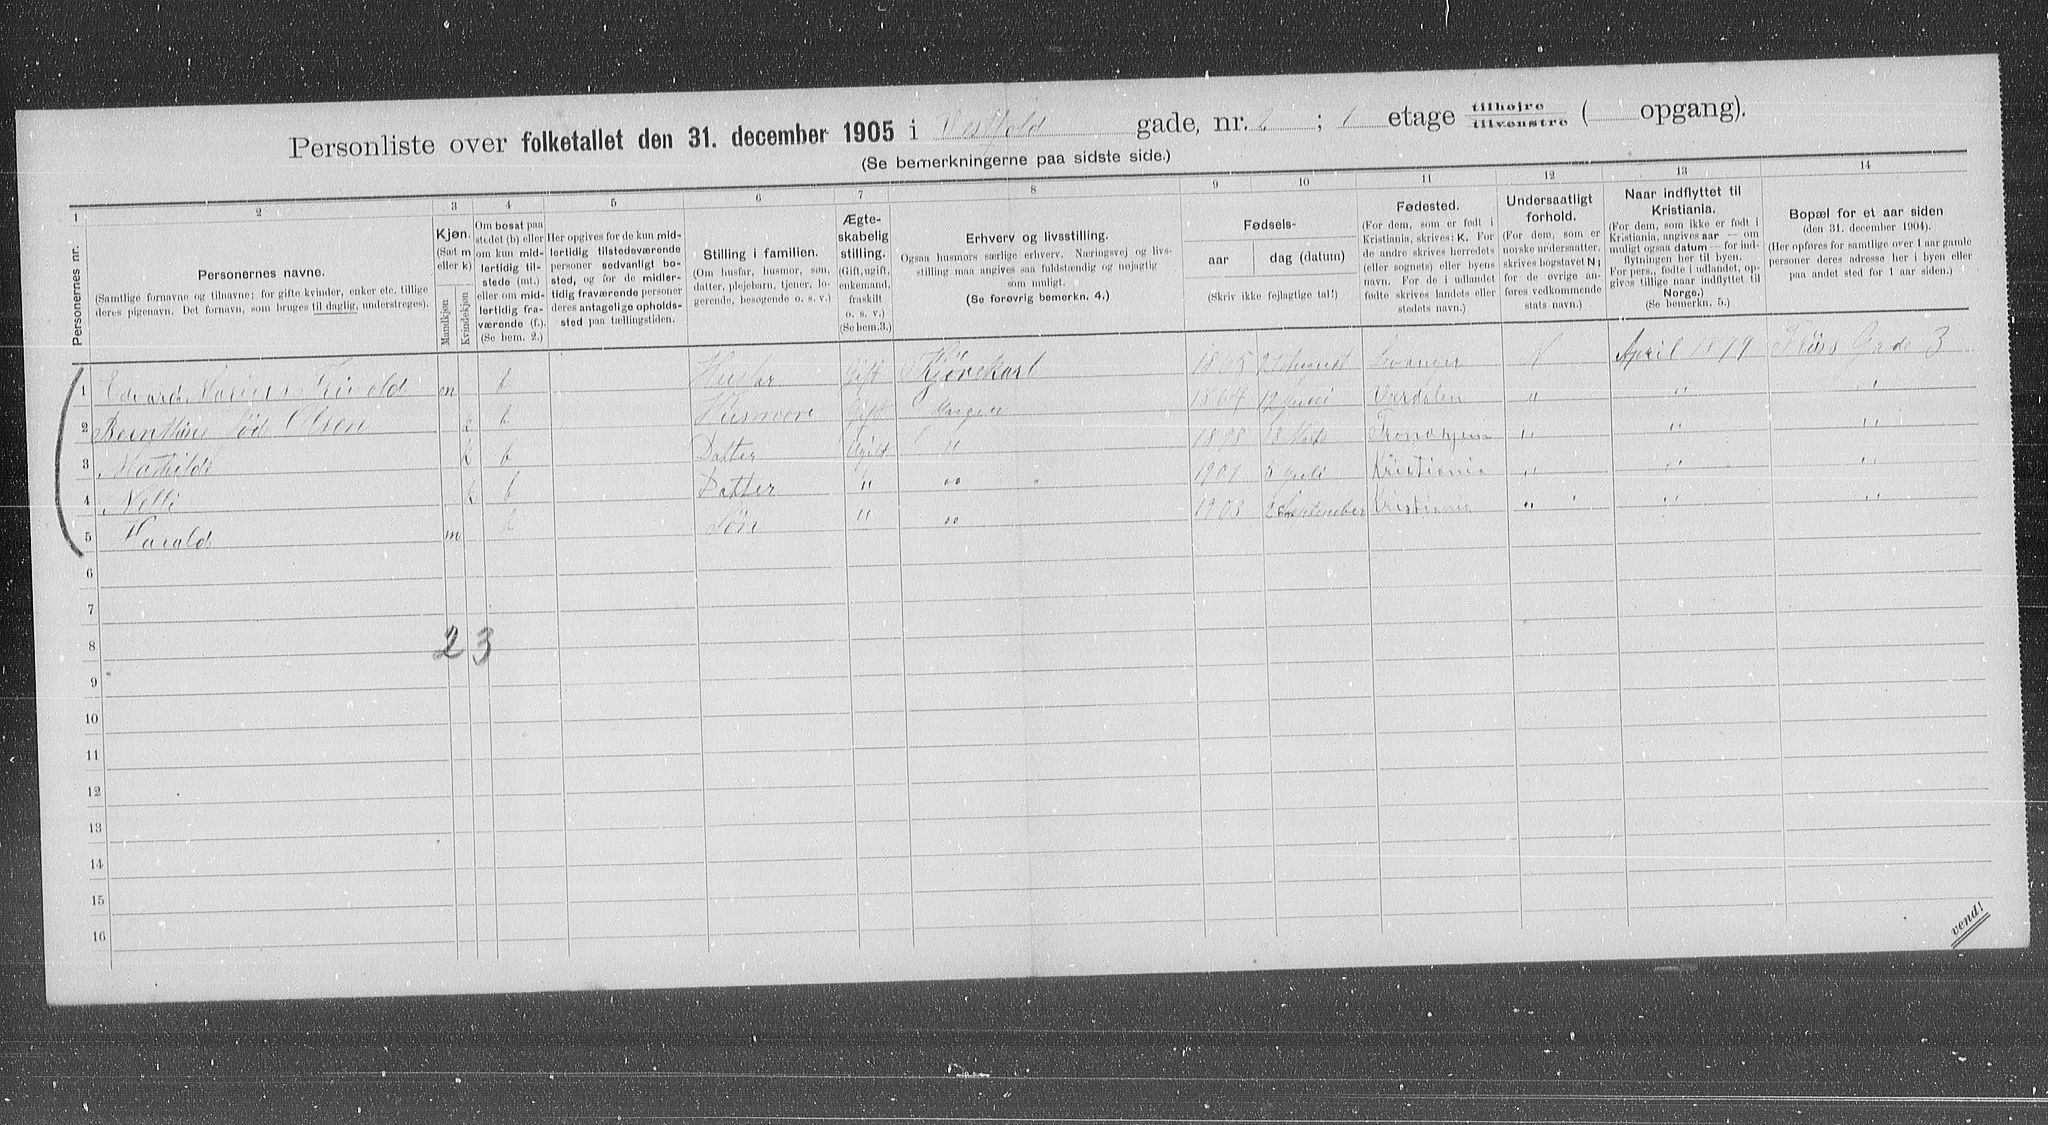 Personliste over folketallet den 31. december 1905 i Vestfold gade, nr. 2 ; 1 etage tilhøjre / tilvenstre ( opgang).
(Se bemerkningerne paa sidste side.)
1 2 3 4 5 6 7 8 9 10 11 12 13 14
Personernes nr.
Personernes navne.
(Samtlige fornavne og tilnavne; for gifte kvinder, enker etc. tillige
deres pigenavn. Det fornavn, som bruges til daglig, understreges).
Kjøn.
(Sæt m
eller k)
Mandkjøn
Kvindekjøn
Om bosat paa
stedet (b) eller
om kun mid-
lertidig til-
stede (mt.)
eller om mid-
lertidig fra-
værende (f.).
(Se bem. 2.)
Her opgives for de kun mid-
lertidig tilstedeværende
personer sedvanlig bo-
sted, og for de midler-
tidig fraværende personer
deres antagelige opholds-
sted paa tællingstiden.
Stilling i familien.
(Om husfar, husmor, søn,
datter, plejebarn, tjener, lo-
gerende, besøgende o. s. v.)
Ægte-
skabelig
stilling.
(Gift, ugift,
enkemand,
fraskilt
o. s. v.)
(Se bem. 3.)
Erhverv og livsstilling.
Ogsaa husmors særlige erhverv. Næringsvej og livs-
stilling maa angives saa fuldstændig og nøjagtig
som muligt.
(Se forøvrig bemerkn. 4.)
Fødsels-
aar
dag (datum)
(Skriv ikke fejlagtige tal!)
Fødested.
(For dem, som er født i
Kristiania, skrives: K. For
de andre skrives herredets
(eller sognets) eller byens
navn. For de i udlandet
fødte skrives landets eller
stedets navn.)
Undersaatligt
forhold.
(For dem, som er
norske undersaatter,
skrives bogstavet N;
for de øvrige an-
føres vedkommende
stats navn.)
Naar indflyttet til
Kristiania.
(For dem, som ikke er født i
Kristiania, angives aar — om
muligt ogsaa datum — for ind-
flytningen her til byen.
For pers., fødte i udlandet, op-
gives tillige naar indflyttet til
Norge.)
(Se bemerkn. 5.)
Bopæl for et aar siden
(den 31. december 1904).
(Her opføres for samtlige over 1 aar gamle
personer deres adresse her i byen eller
paa andet sted for 1 aar siden.)
1 Edvard Marius m b Husfar Gift Kjørekarl 1865 2 August Levanger N April 1899 Friis Gade 3
2 Olsen k b Husmore Gift 1864 12 Verdalen " " "
3 Mathilde k b Datter Ugift " 1898 18 Trondhjem " " "
4 Nelli k b Datter " " 1901 3 Juli Kristiania " " "
5 Harald m b Søn " " 1903 2 September Kristiania " " "
6
7
8 2 3
9
10
11
12
13
14
15
16
vend!